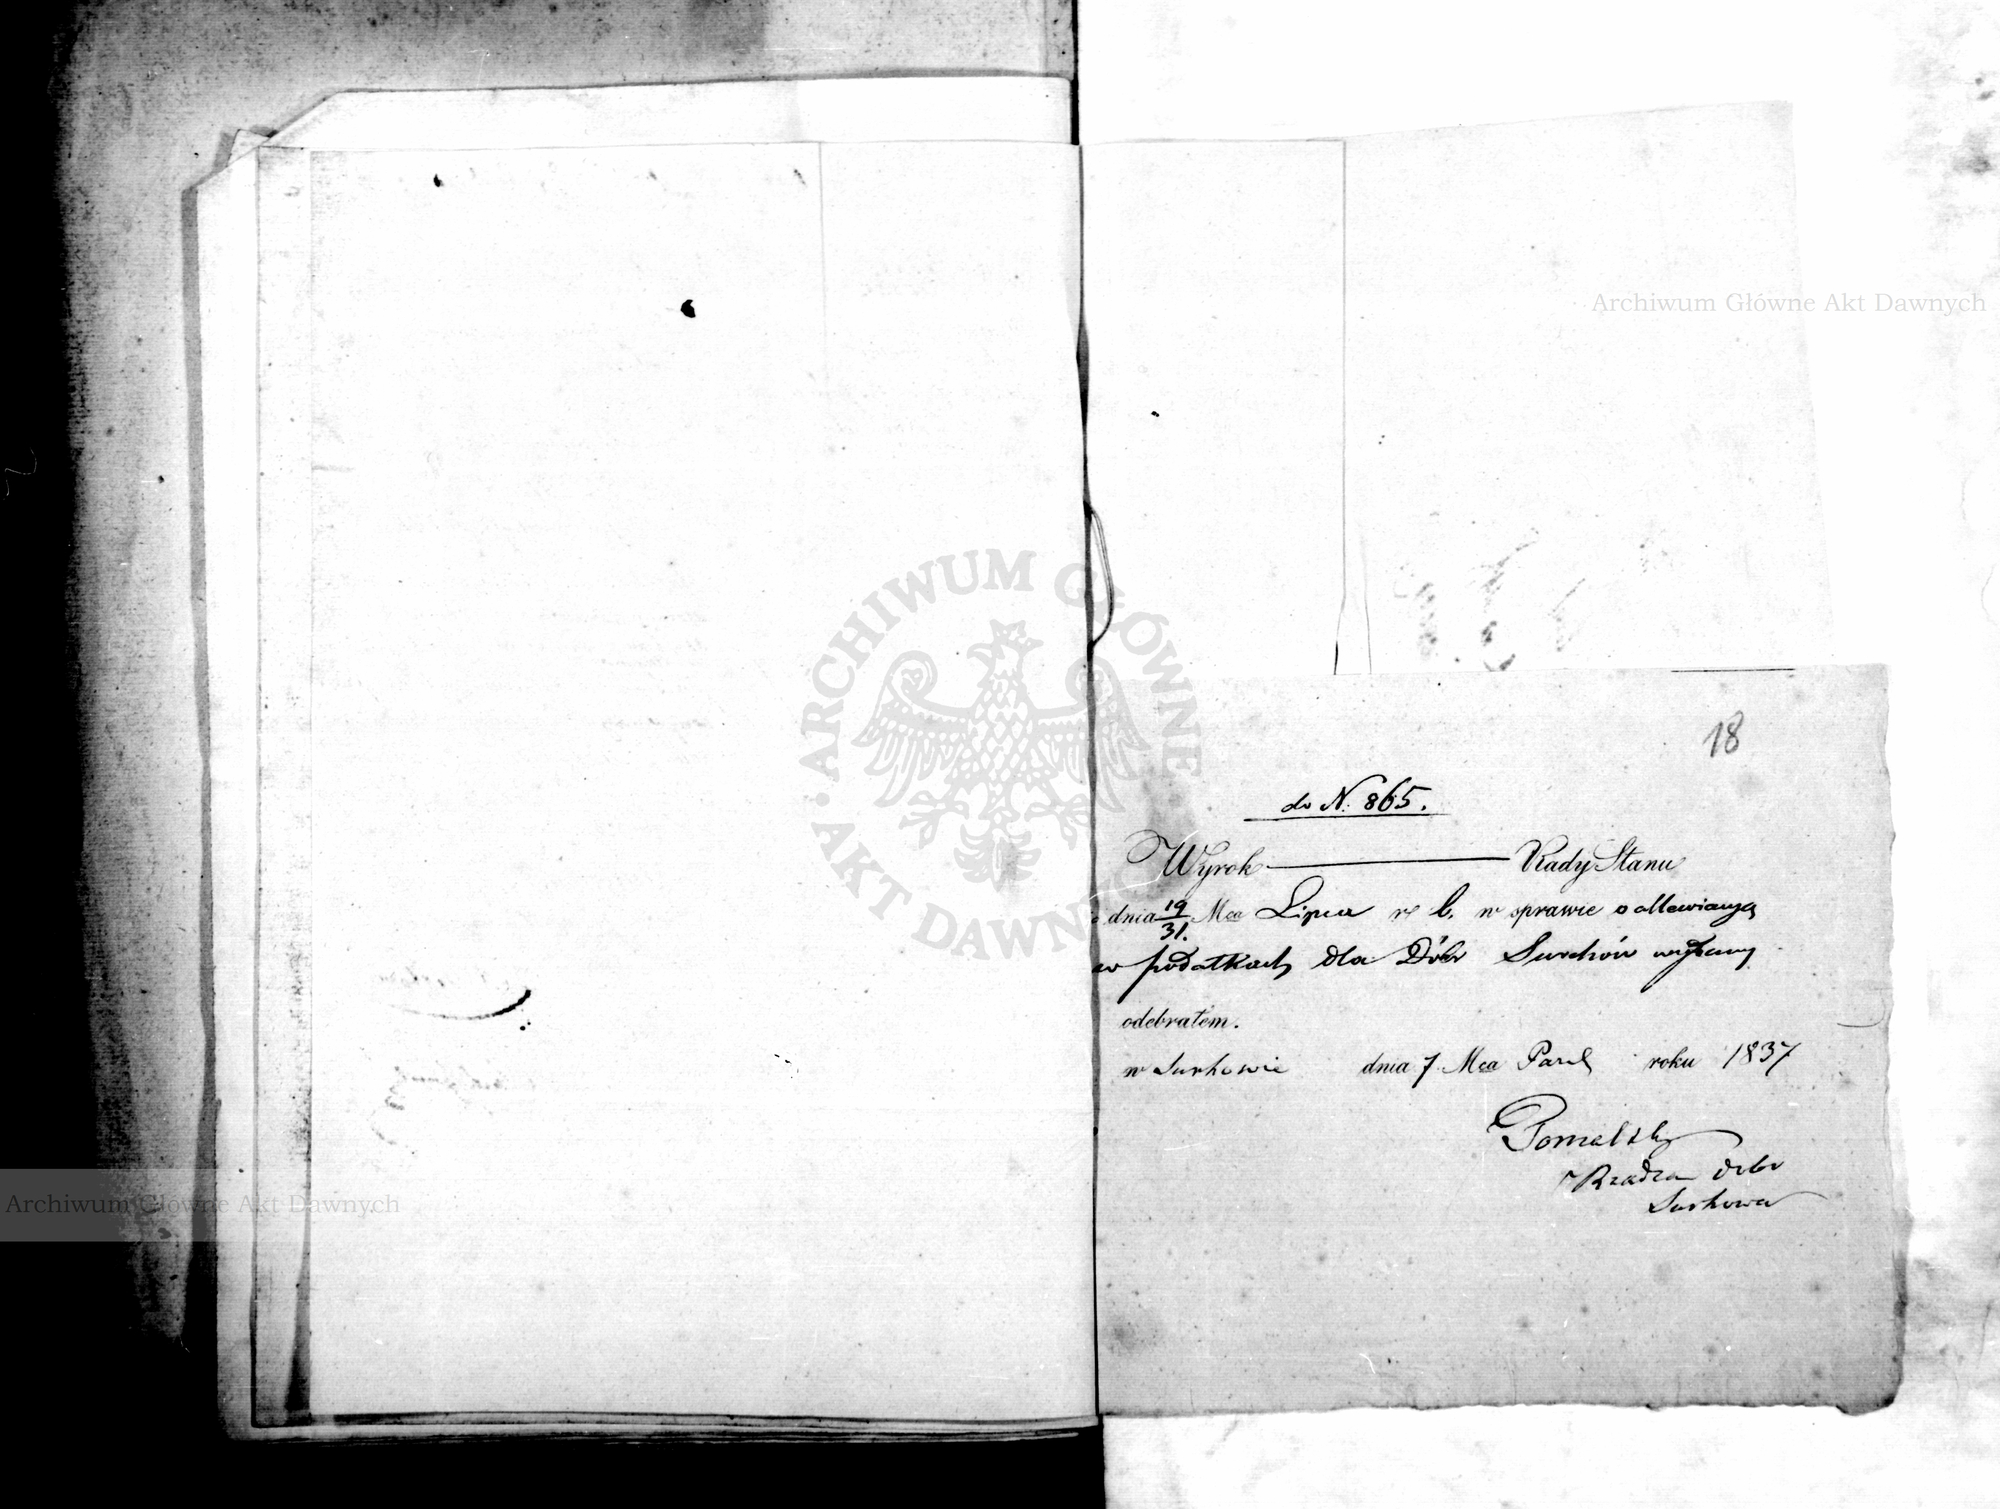 18
do N. 865.
Wyrok Rady Stanu
dnia 19/31. Mca Lipca r. b. w sprawie o
w podatkach dla Dóbr Surchów wydany
odebrałem.
w Surhowie dnia 7 Mca roku 1837
Rządca Dóbr
Surhowa
Archiwum Główne Akt Dawnych
Archiwum Główne Akt Dawnych
ARCHIWUM GŁÓWNE AKT DAWNYCH